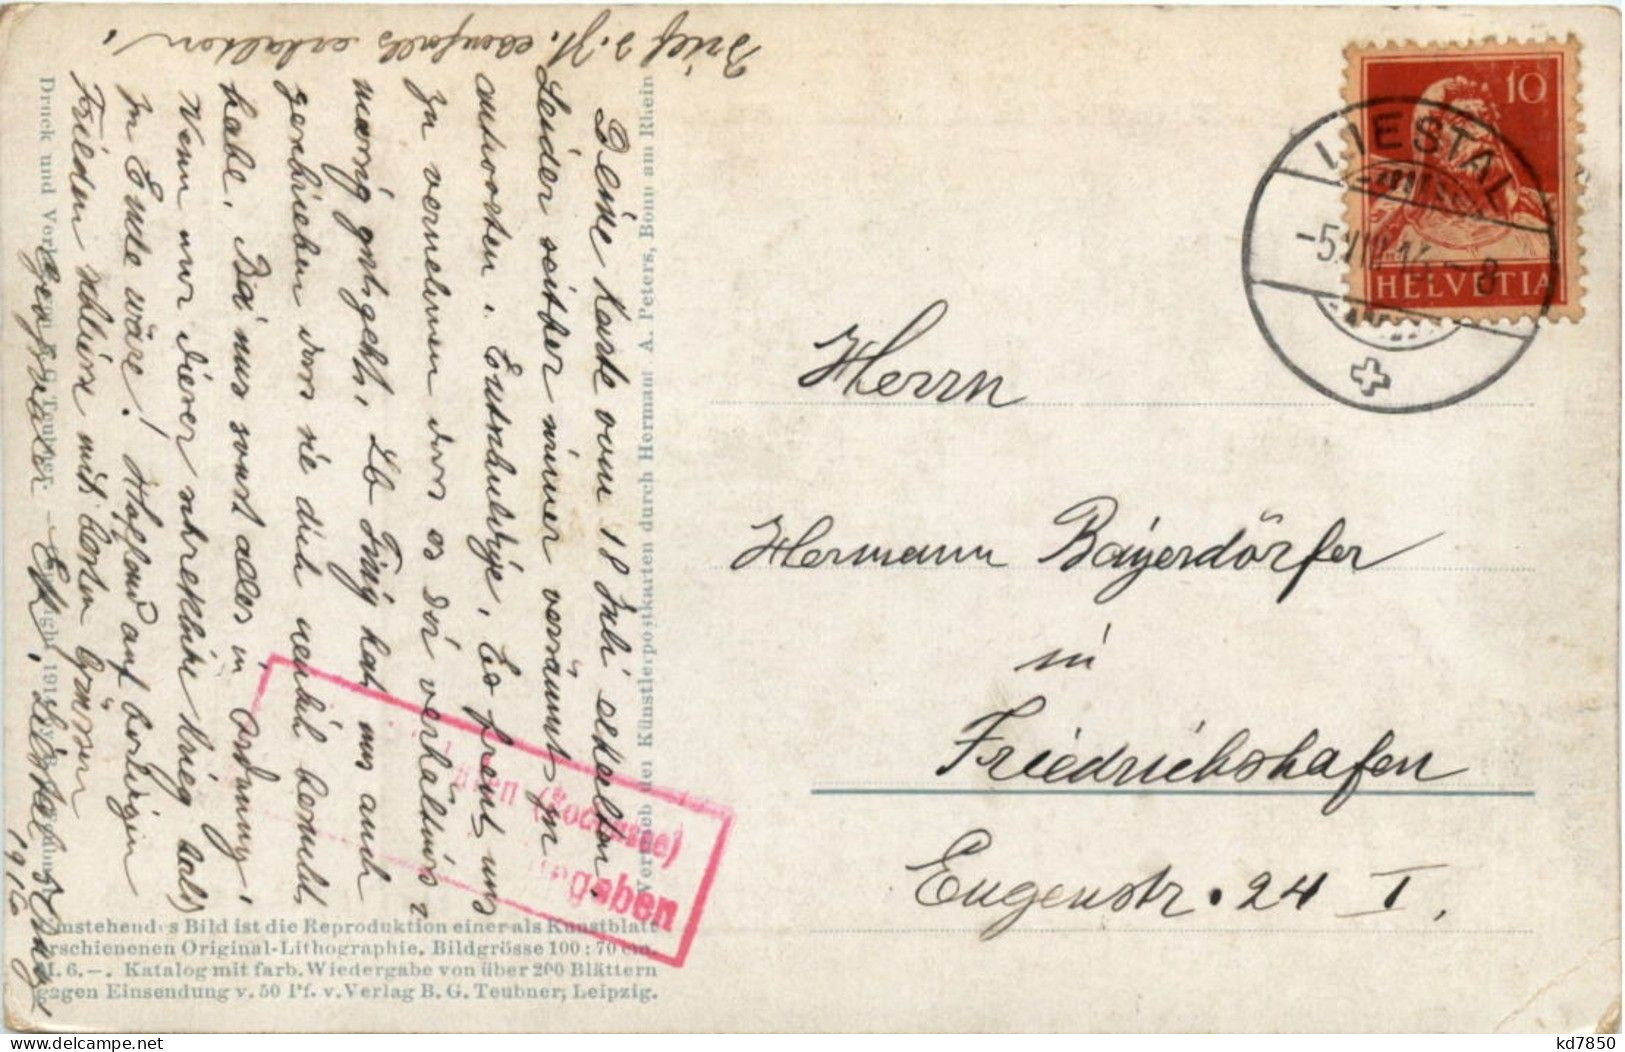 Brief s. Zt. ebenfalls erhalten!
Deine Karte vom 18 Juli erhalten.
Leider seither immer versäumt zu
antworten. Entschuldige. Es freut uns
zu vernehmen dass es dir verhältnis=
mässig gut geht. Lb hat uns auch
geschrieben dass sie dich besucht
habe. Bei uns sonst alles in Ordnung.
Wenn nur dieser schreckliche Krieg bald
zu Ende wäre! Hoffend auf baldigen
Frieden schliesst mit besten Grüssen
Liestal
Druck und Verlag von B. G. Teubner
Vertrieb der Künstlerpostkarten durch Hermann A. Peters, Bonn am Rhein
Umstehendes Bild ist die Reproduktion einer als Kunstblatt
erschienenen Original-Lithographie. Bildgrösse 100 : 70 cm.
M. 6.—. Katalog mit farb. Wiedergabe von über 200 Blättern
gegen Einsendung v. 50 Pf. v. Verlag B. G. Teubner, Leipzig.
(Bodensee)
10
HELVETIA
LIESTAL
Herrn
Hermann Bayerdörfer
in
Friedrichshafen
Eugenstr. 24 I.
kd7850